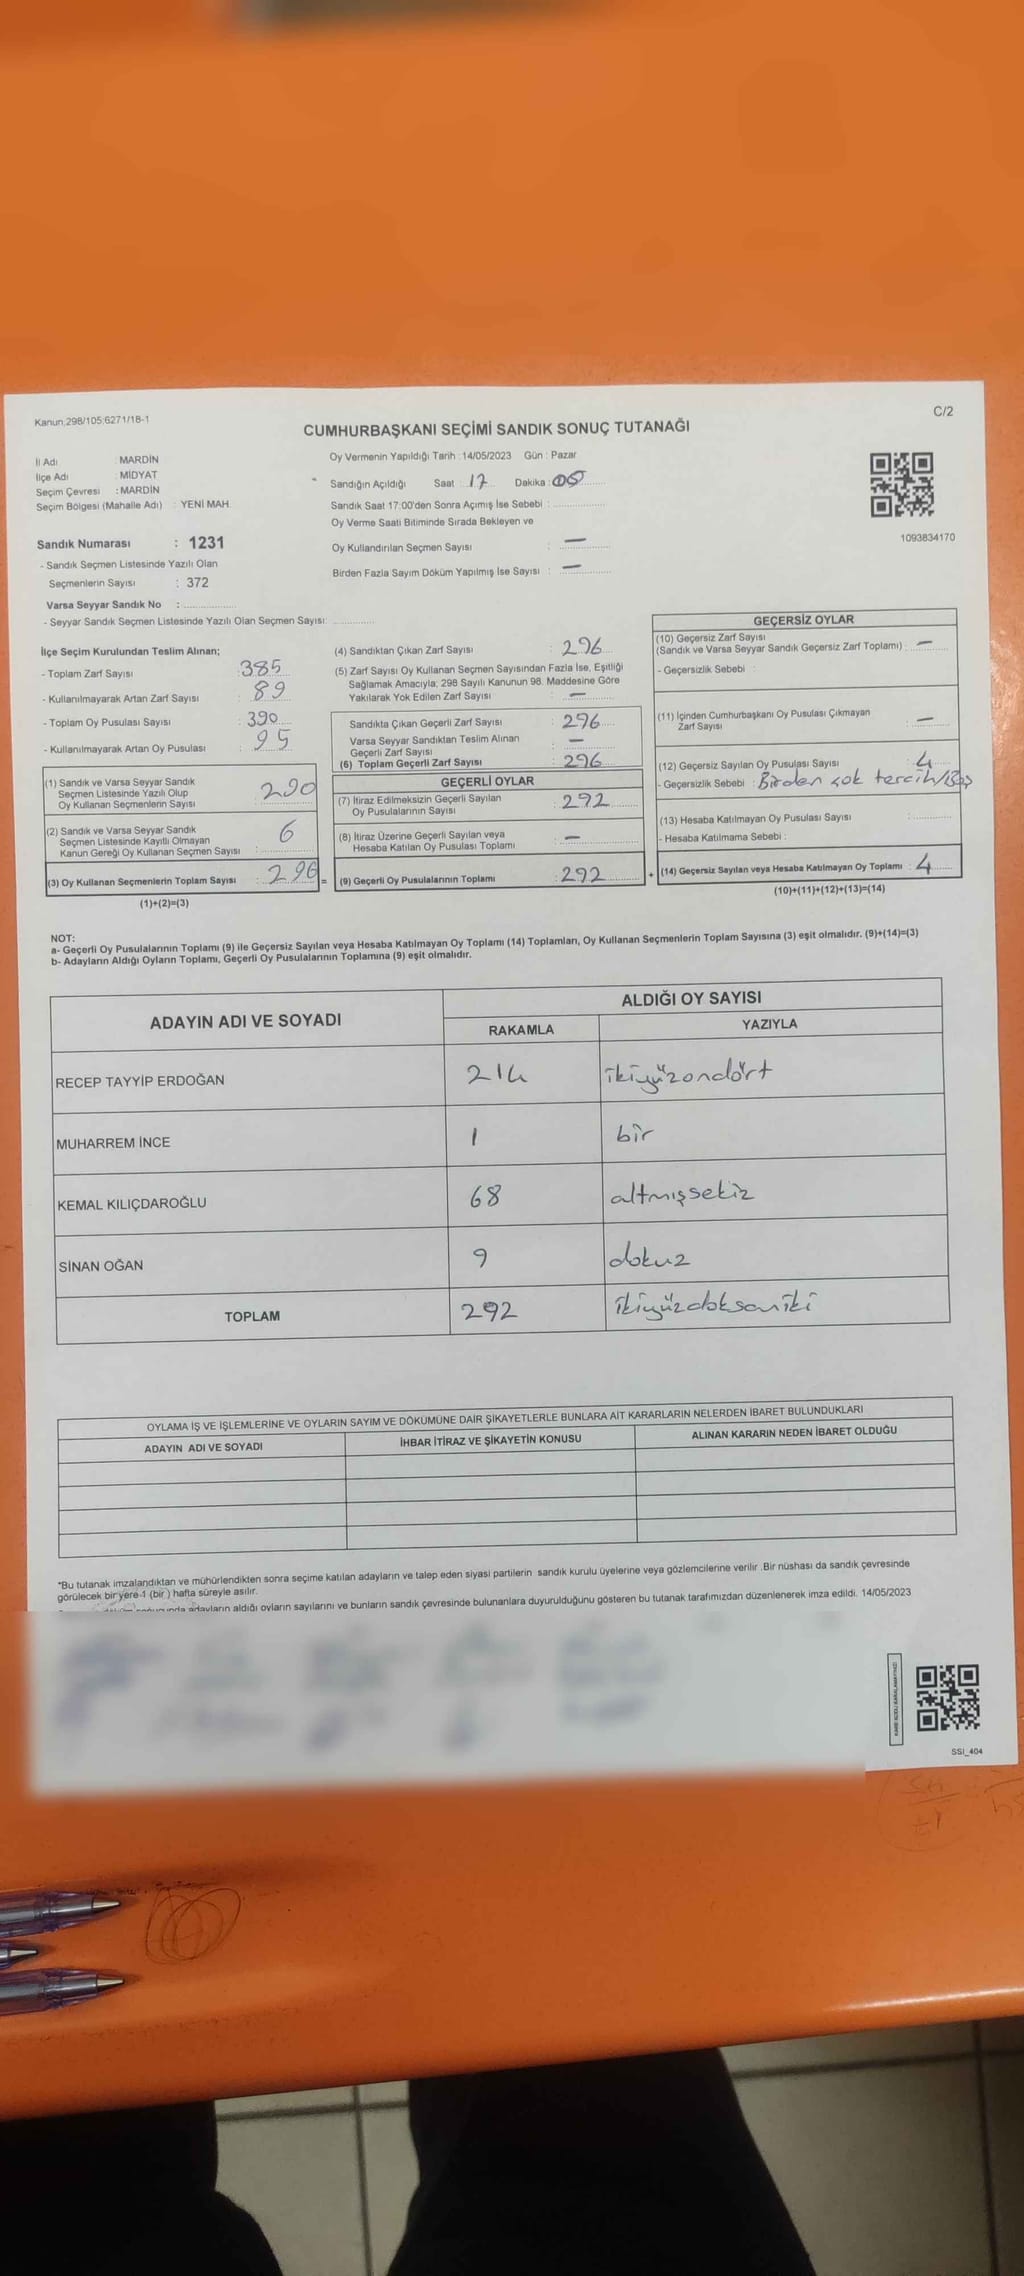 Kanun,298/105;6271/18-1
C/2
CUMHURBAŞKANI SEÇİMİ SANDIK SONUÇ TUTANAĞI
İl Adı : MARDİN
İlçe Adı : MİDYAT
Seçim Çevresi : MARDİN
Seçim Bölgesi (Mahalle Adı) : YENİ MAH.
Sandık Numarası : 1231
- Sandık Seçmen Listesinde Yazılı Olan
Seçmenlerin Sayısı : 372
Varsa Seyyar Sandık No :
- Seyyar Sandık Seçmen Listesinde Yazılı Olan Seçmen Sayısı:
Oy Vermenin Yapıldığı Tarih : 14/05/2023 Gün : Pazar
Sandığın Açıldığı Saat : 17 Dakika : 05
Sandık Saat 17:00'den Sonra Açımış İse Sebebi :
Oy Verme Saati Bitiminde Sırada Bekleyen ve
Oy Kullandırılan Seçmen Sayısı : —
Birden Fazla Sayım Döküm Yapılmış İse Sayısı : —
1093834170
İlçe Seçim Kurulundan Teslim Alınan;
- Toplam Zarf Sayısı : 385
- Kullanılmayarak Artan Zarf Sayısı : 89
- Toplam Oy Pusulası Sayısı : 390
- Kullanılmayarak Artan Oy Pusulası : 95
(1) Sandık ve Varsa Seyyar Sandık
Seçmen Listesinde Yazılı Olup
Oy Kullanan Seçmenlerin Sayısı : 290
(2) Sandık ve Varsa Seyyar Sandık
Seçmen Listesinde Kayıtlı Olmayan
Kanun Gereği Oy Kullanan Seçmen Sayısı : 6
(3) Oy Kullanan Seçmenlerin Toplam Sayısı : 296 =
(1)+(2)=(3)
(4) Sandıktan Çıkan Zarf Sayısı : 296
(5) Zarf Sayısı Oy Kullanan Seçmen Sayısından Fazla İse, Eşitliği
Sağlamak Amacıyla; 298 Sayılı Kanunun 98. Maddesine Göre
Yakılarak Yok Edilen Zarf Sayısı : —
Sandıkta Çıkan Geçerli Zarf Sayısı : 296
Varsa Seyyar Sandıktan Teslim Alınan
Geçerli Zarf Sayısı : —
(6) Toplam Geçerli Zarf Sayısı : 296
GEÇERLİ OYLAR
(7) İtiraz Edilmeksizin Geçerli Sayılan
Oy Pusulalarının Sayısı : 292
(8) İtiraz Üzerine Geçerli Sayılan veya
Hesaba Katılan Oy Pusulası Toplamı : —
(9) Geçerli Oy Pusulalarının Toplamı : 292 +
GEÇERSİZ OYLAR
(10) Geçersiz Zarf Sayısı
(Sandık ve Varsa Seyyar Sandık Geçersiz Zarf Toplamı) : —
- Geçersizlik Sebebi :
(11) İçinden Cumhurbaşkanı Oy Pusulası Çıkmayan
Zarf Sayısı : —
(12) Geçersiz Sayılan Oy Pusulası Sayısı : 4
- Geçersizlik Sebebi : Birden çok tercih/Boş
(13) Hesaba Katılmayan Oy Pusulası Sayısı :
- Hesaba Katılmama Sebebi :
(14) Geçersiz Sayılan veya Hesaba Katılmayan Oy Toplamı : 4
(10)+(11)+(12)+(13)=(14)
NOT:
a- Geçerli Oy Pusulalarının Toplamı (9) ile Geçersiz Sayılan veya Hesaba Katılmayan Oy Toplamı (14) Toplamları, Oy Kullanan Seçmenlerin Toplam Sayısına (3) eşit olmalıdır. (9)+(14)=(3)
b- Adayların Aldığı Oyların Toplamı, Geçerli Oy Pusulalarının Toplamına (9) eşit olmalıdır.
ADAYIN ADI VE SOYADI ALDIĞI OY SAYISI
RAKAMLA YAZIYLA
RECEP TAYYİP ERDOĞAN 214 ikiyüzondört
MUHARREM İNCE 1 bir
KEMAL KILIÇDAROĞLU 68 altmışsekiz
SİNAN OĞAN 9 dokuz
TOPLAM 292 ikiyüzdoksaniki
OYLAMA İŞ VE İŞLEMLERİNE VE OYLARIN SAYIM VE DÖKÜMÜNE DAİR ŞİKAYETLERLE BUNLARA AİT KARARLARIN NELERDEN İBARET BULUNDUKLARI
ADAYIN ADI VE SOYADI İHBAR İTİRAZ VE ŞİKAYETİN KONUSU ALINAN KARARIN NEDEN İBARET OLDUĞU
*Bu tutanak imzalandıktan ve mühürlendikten sonra seçime katılan adayların ve talep eden siyasi partilerin sandık kurulu üyelerine veya gözlemcilerine verilir .Bir nüshası da sandık çevresinde
görülecek bir yere 1 (bir ) hafta süreyle asılır.
adayların aldığı oyların sayılarını ve bunların sandık çevresinde bulunanlara duyurulduğunu gösteren bu tutanak tarafımızdan düzenlenerek imza edildi. 14/05/2023
SSI_404